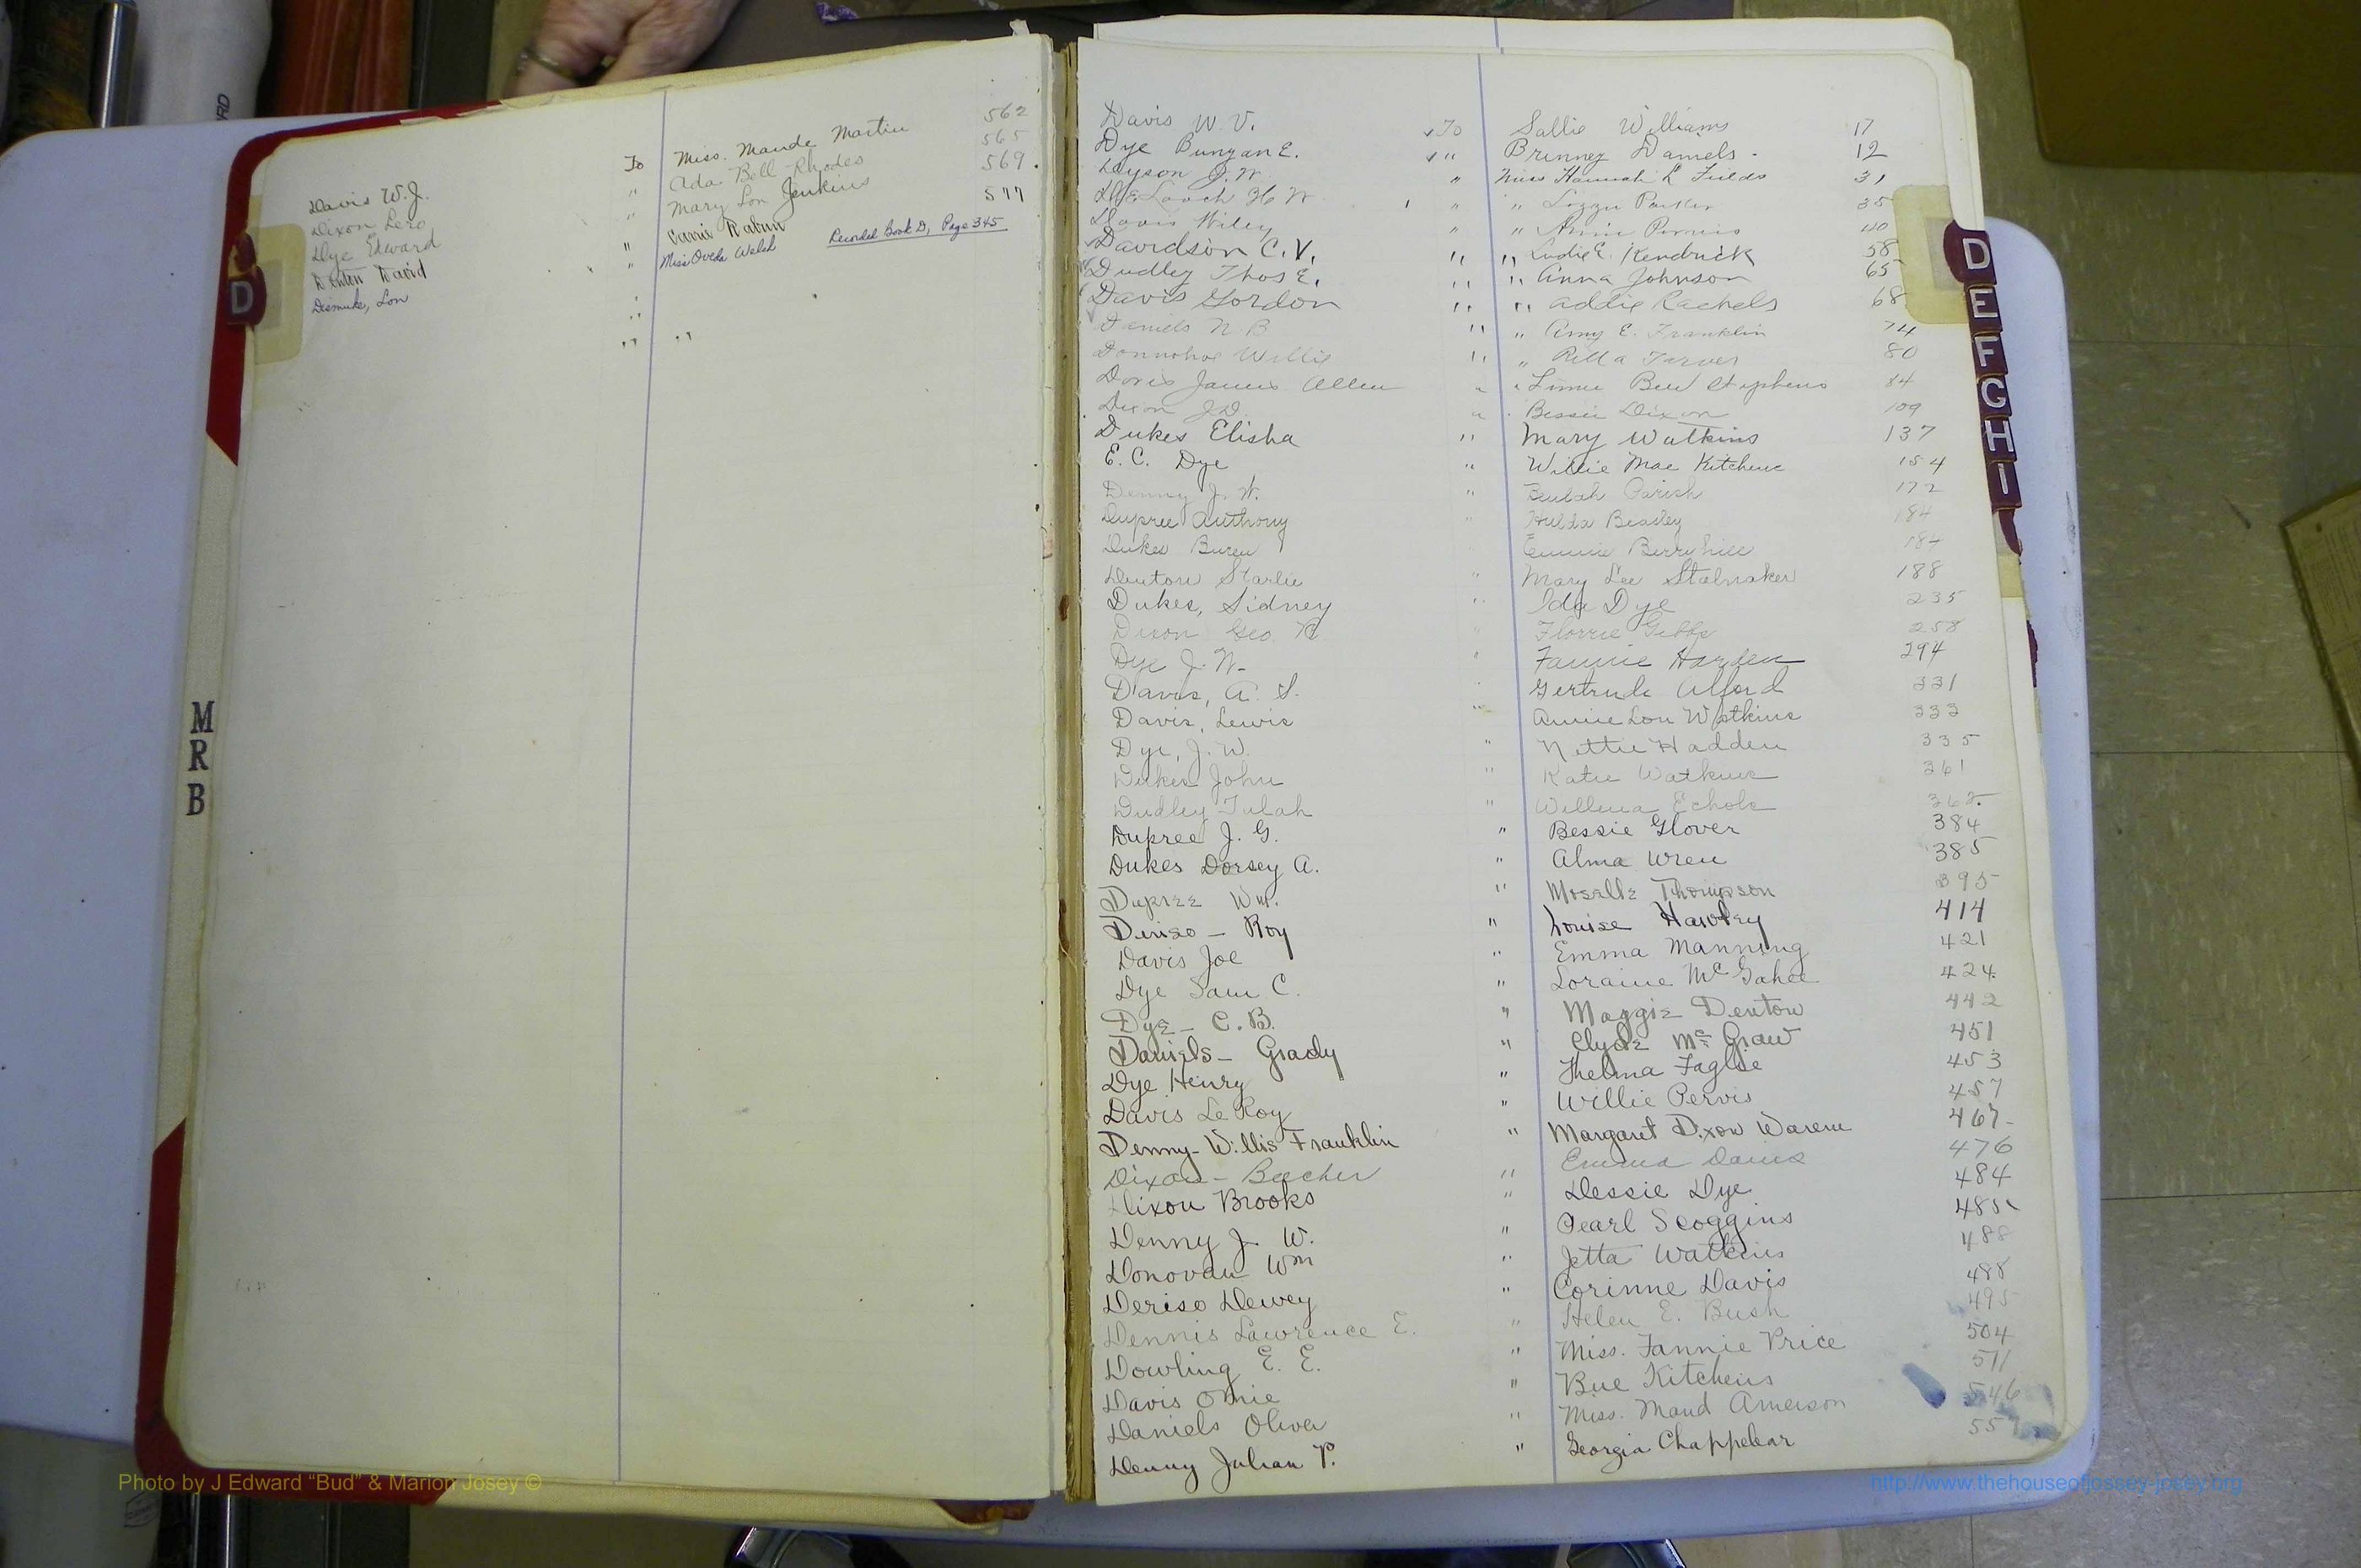 562
Davis W.J. To Miss. Maude Martin 565
Dixon Lero " Ada Bell Rhodes 569.
Dye Edward " Mary Lou Jenkins 577
Denton David "
Dismuke, Lon " Miss Oveda Welsh Recorded Book D, Page 345
"
" "
D
M
R
B
Davis W. V. To Sallie Williams 17
Dye Bunyan E. " Brinney Daniels. 12
J. W. " Miss Hannah L Fields 31
DeLoach H W " " Lizzie Parker 35
Davis Wiley " " Annie 40
Davidson C. V. " " Ludie E. Kendrick 58
Dudley Thos E. " " Anna Johnson 65
Davis Gordon " " Addie Rachels 68
Daniels N B " " Amy E. Franklin 74
Donnohoe Willie " " Rilla Tarver 80
Davis James Allen " " Stephens 84
Dixon J.D. " Bessie Dixon 109
Dukes Elisha " Mary Watkins 137
E. C. Dye " Willie Mae Kitchens 154
Denny J. W. " Beulah Parish 172
Dupree Anthony " Hulda Beasley 184
Dukes Buren " Emmie Berryhill 184
Denton Starlie " Mary Lee Stalnaker 188
Dukes, Sidney " Ida Dye 235
Dixon Geo. R " Florrie Gibbs 258
Dye J. W. " Fannie Harden 294
Davis, A. S. " Gertrude Alford 331
Davis, Lewis " Annie Lou Watkins 333
Dye, J. W. " Nettie Hadden 335
Dukes John " Katie Watkins 361
Dudley Tulah " Willena Echols 362.
Dupree J. G. " Bessie Glover 384
Dukes Dorsey A. " Alma Wren 385
Dupree Wm. " Moselle Thompson 395
Deriso - Roy " Louise Hawley 414
Davis Joe " Emma Manning 421
Dye Sam C. " Loraine McGahee 424
Dye - C. B. " Maggie Denton 442
Daniels - Grady " Clyde McGraw 451
Dye Henry " Thelma Faglie 453
Davis Le Roy " Willie Pervis 457
Denny - Willis Franklin " Margaret Dixon Warren 467
Dixon - Beecher " Emma Davis 476
Dixon Brooks " Dessie Dye 484
Denny J. W. " Pearl Scoggins 485
Donovan Wm " Jetta Watkins 488
Deriso Dewey " Corinne Davis 488
Dennis Lawrence E. " Helen E. Bush 495
Dowling E. E. " Miss. Fannie Price 504
Davis Omie " Bue Kitchens 511
Daniels Oliver " Miss. Maud Amerson 546
Denny Julian P. " Georgia Chappelear 557
D
E
F
G
H
I
Photo by J Edward “Bud” & Marion Josey ©
http://www.thehouseofjossey-josey.org